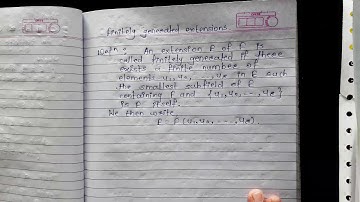 finitely generated extensions
Defn: An extension E of F is
called finitely generated if there
exists a finite number of
elements u1, u2, ---, ur in E such
the smallest subfield of E
containing F and {u1, u2, ---, ur}
is E itself.
We then write
E = F (u1, u2, ---, ur).